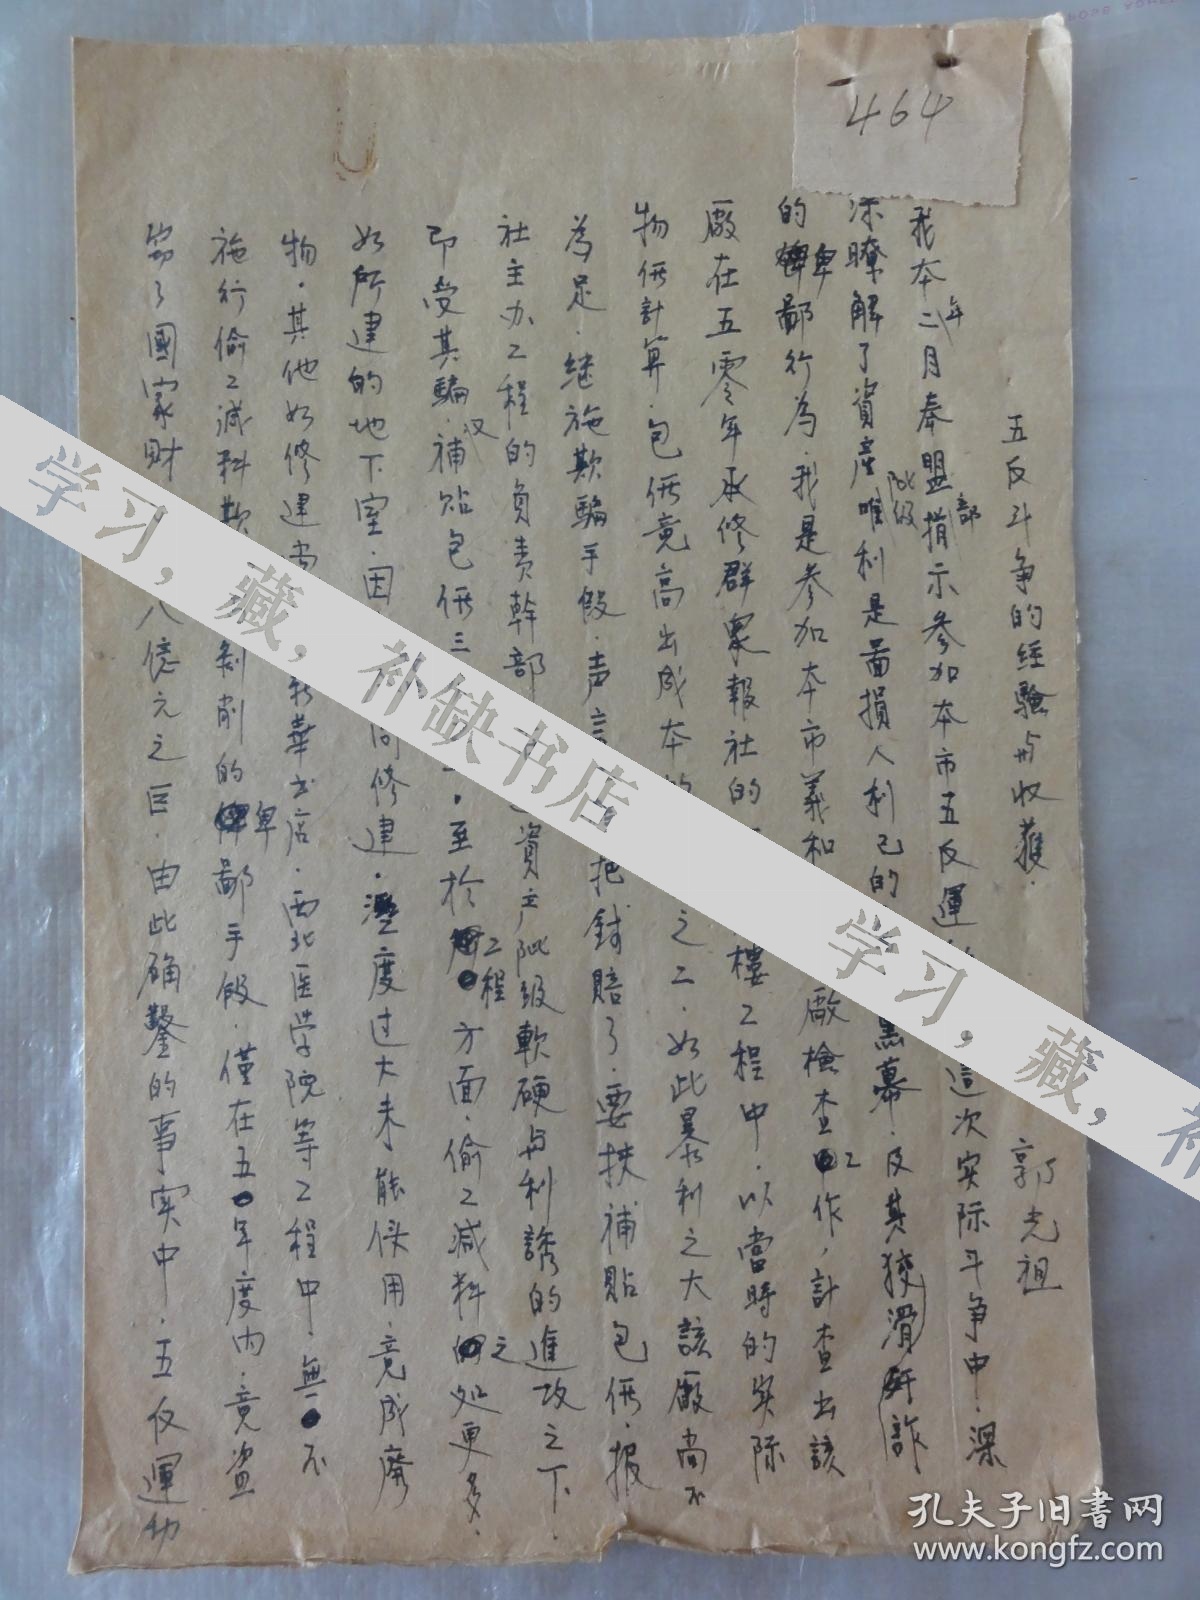 464
五反斗争的经驗与收獲. 郭光祖
我本年二月奉盟部指示参加本市五反運 這次实际斗争中.深
深瞭解了資産阶级唯利是啚損人利己的 黑幕.及其狡滑奸詐
的卑鄙行为.我是参加本市義和 廠检查工作,計查出該
廠在五零年承修群衆報社的 樓工程中.以當時的实际
物価計算.包価竟高出成本的 之二.如此暴利之大該廠尚不
為足.继施欺騙手段.声言 把錢賠了.要扶補貼包価.报
社主办工程的負责幹部 資产阶级軟硬与利誘的進攻之下.
即受其騙.又補贴包価三 一.至於工程方面.偷工减料之处更多.
如所建的地下室.因 同修建.溼度过大未能使用.竟成廢
物.其他如修建 新華书店.西北医学院等工程中.無一不
施行偷工减料欺 剝削的卑鄙手段.僅在五0年度内.竟盗
窃了國家財 八億元之巨.由此确鑿的事实中.五反運动
学习,藏,补缺书店
学习,藏,补
孔夫子旧书网
www.kongfz.com